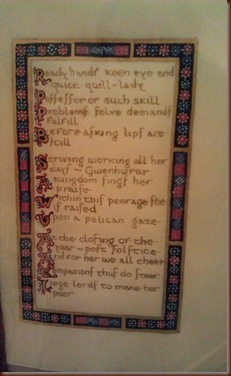 Ready hands keen eye and
quick quill-lady
Possessor of such skill
Problems solve demands
fulfill
Before asking lips are
still
Striving working all her
days - Gwenhwyfar
Kingdom sings her
praise
Within this peerage she
is raised
Upon a pelican gaze
At the closing of the
year - post solstice
And for her we all cheer
Companions this do steer
Liege lords to make her
poor